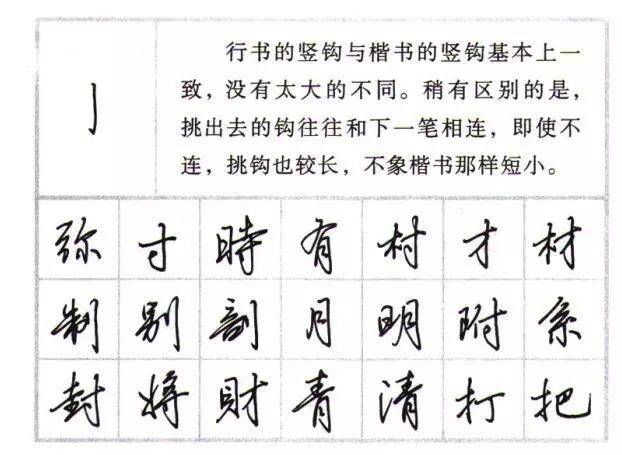 行书的竖钩与楷书的竖钩基本上一
致，没有太大的不同。稍有区别的是，
挑出去的钩往往和下一笔相连，即使不
连，挑钩也较长，不象楷书那样短小。
弥 寸 時 有 村 才 材
制 别 剖 月 明 附 系
封 将 財 青 清 打 把